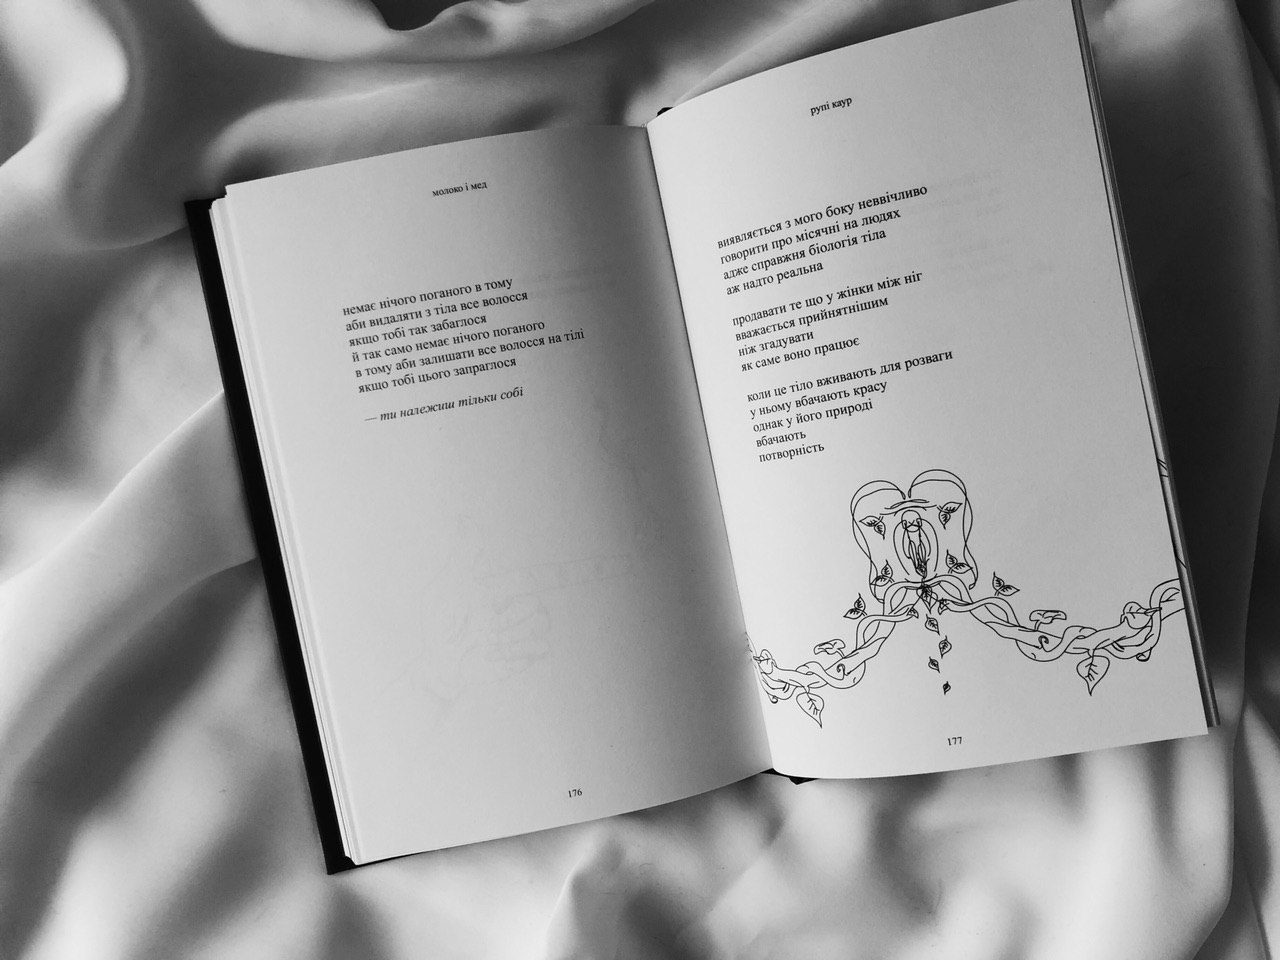 молоко і мед
немає нічого поганого в тому
аби видаляти з тіла все волосся
якщо тобі так забаглося
й так само немає нічого поганого
в тому аби залишати все волосся на тілі
якщо тобі цього запраглося
— ти належиш тільки собі
176
рупі каур
виявляється з мого боку неввічливо
говорити про місячні на людях
адже справжня біологія тіла
аж надто реальна
продавати те що у жінки між ніг
вважається прийнятнішим
ніж згадувати
як саме воно працює
коли це тіло вживають для розваги
у ньому вбачають красу
однак у його природі
вбачають
потворність
177